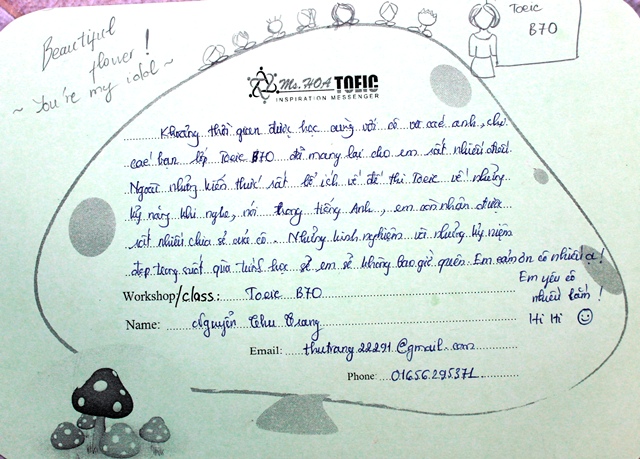 Beautiful
flower !
~ You're my idol ~
Toeic
B70
Ms. HOA TOEIC
INSPIRATION MESSENGER
Khoảng thời gian được học cùng với cô và các anh, chị
các bạn lớp Toeic B70 đã mang lại cho em rất nhiều điều
Ngoài những kiến thức rất bổ ích về đề thi Toeic về những
kỹ năng khi nghe, nói trong tiếng Anh, em còn nhận được
rất nhiều chia sẻ của cô. Những kinh nghiệm và những kỷ niệm
đẹp trong suốt quá trình học sẽ em sẽ không bao giờ quên. Em cảm ơn cô nhiều ạ !
Em yêu cô
nhiều lắm !
Hi Hi
Workshop/class: Toeic B70
Name: Nguyễn Thu Trang
Email: thutrang.22291@gmail.com
Phone: 01656.295371